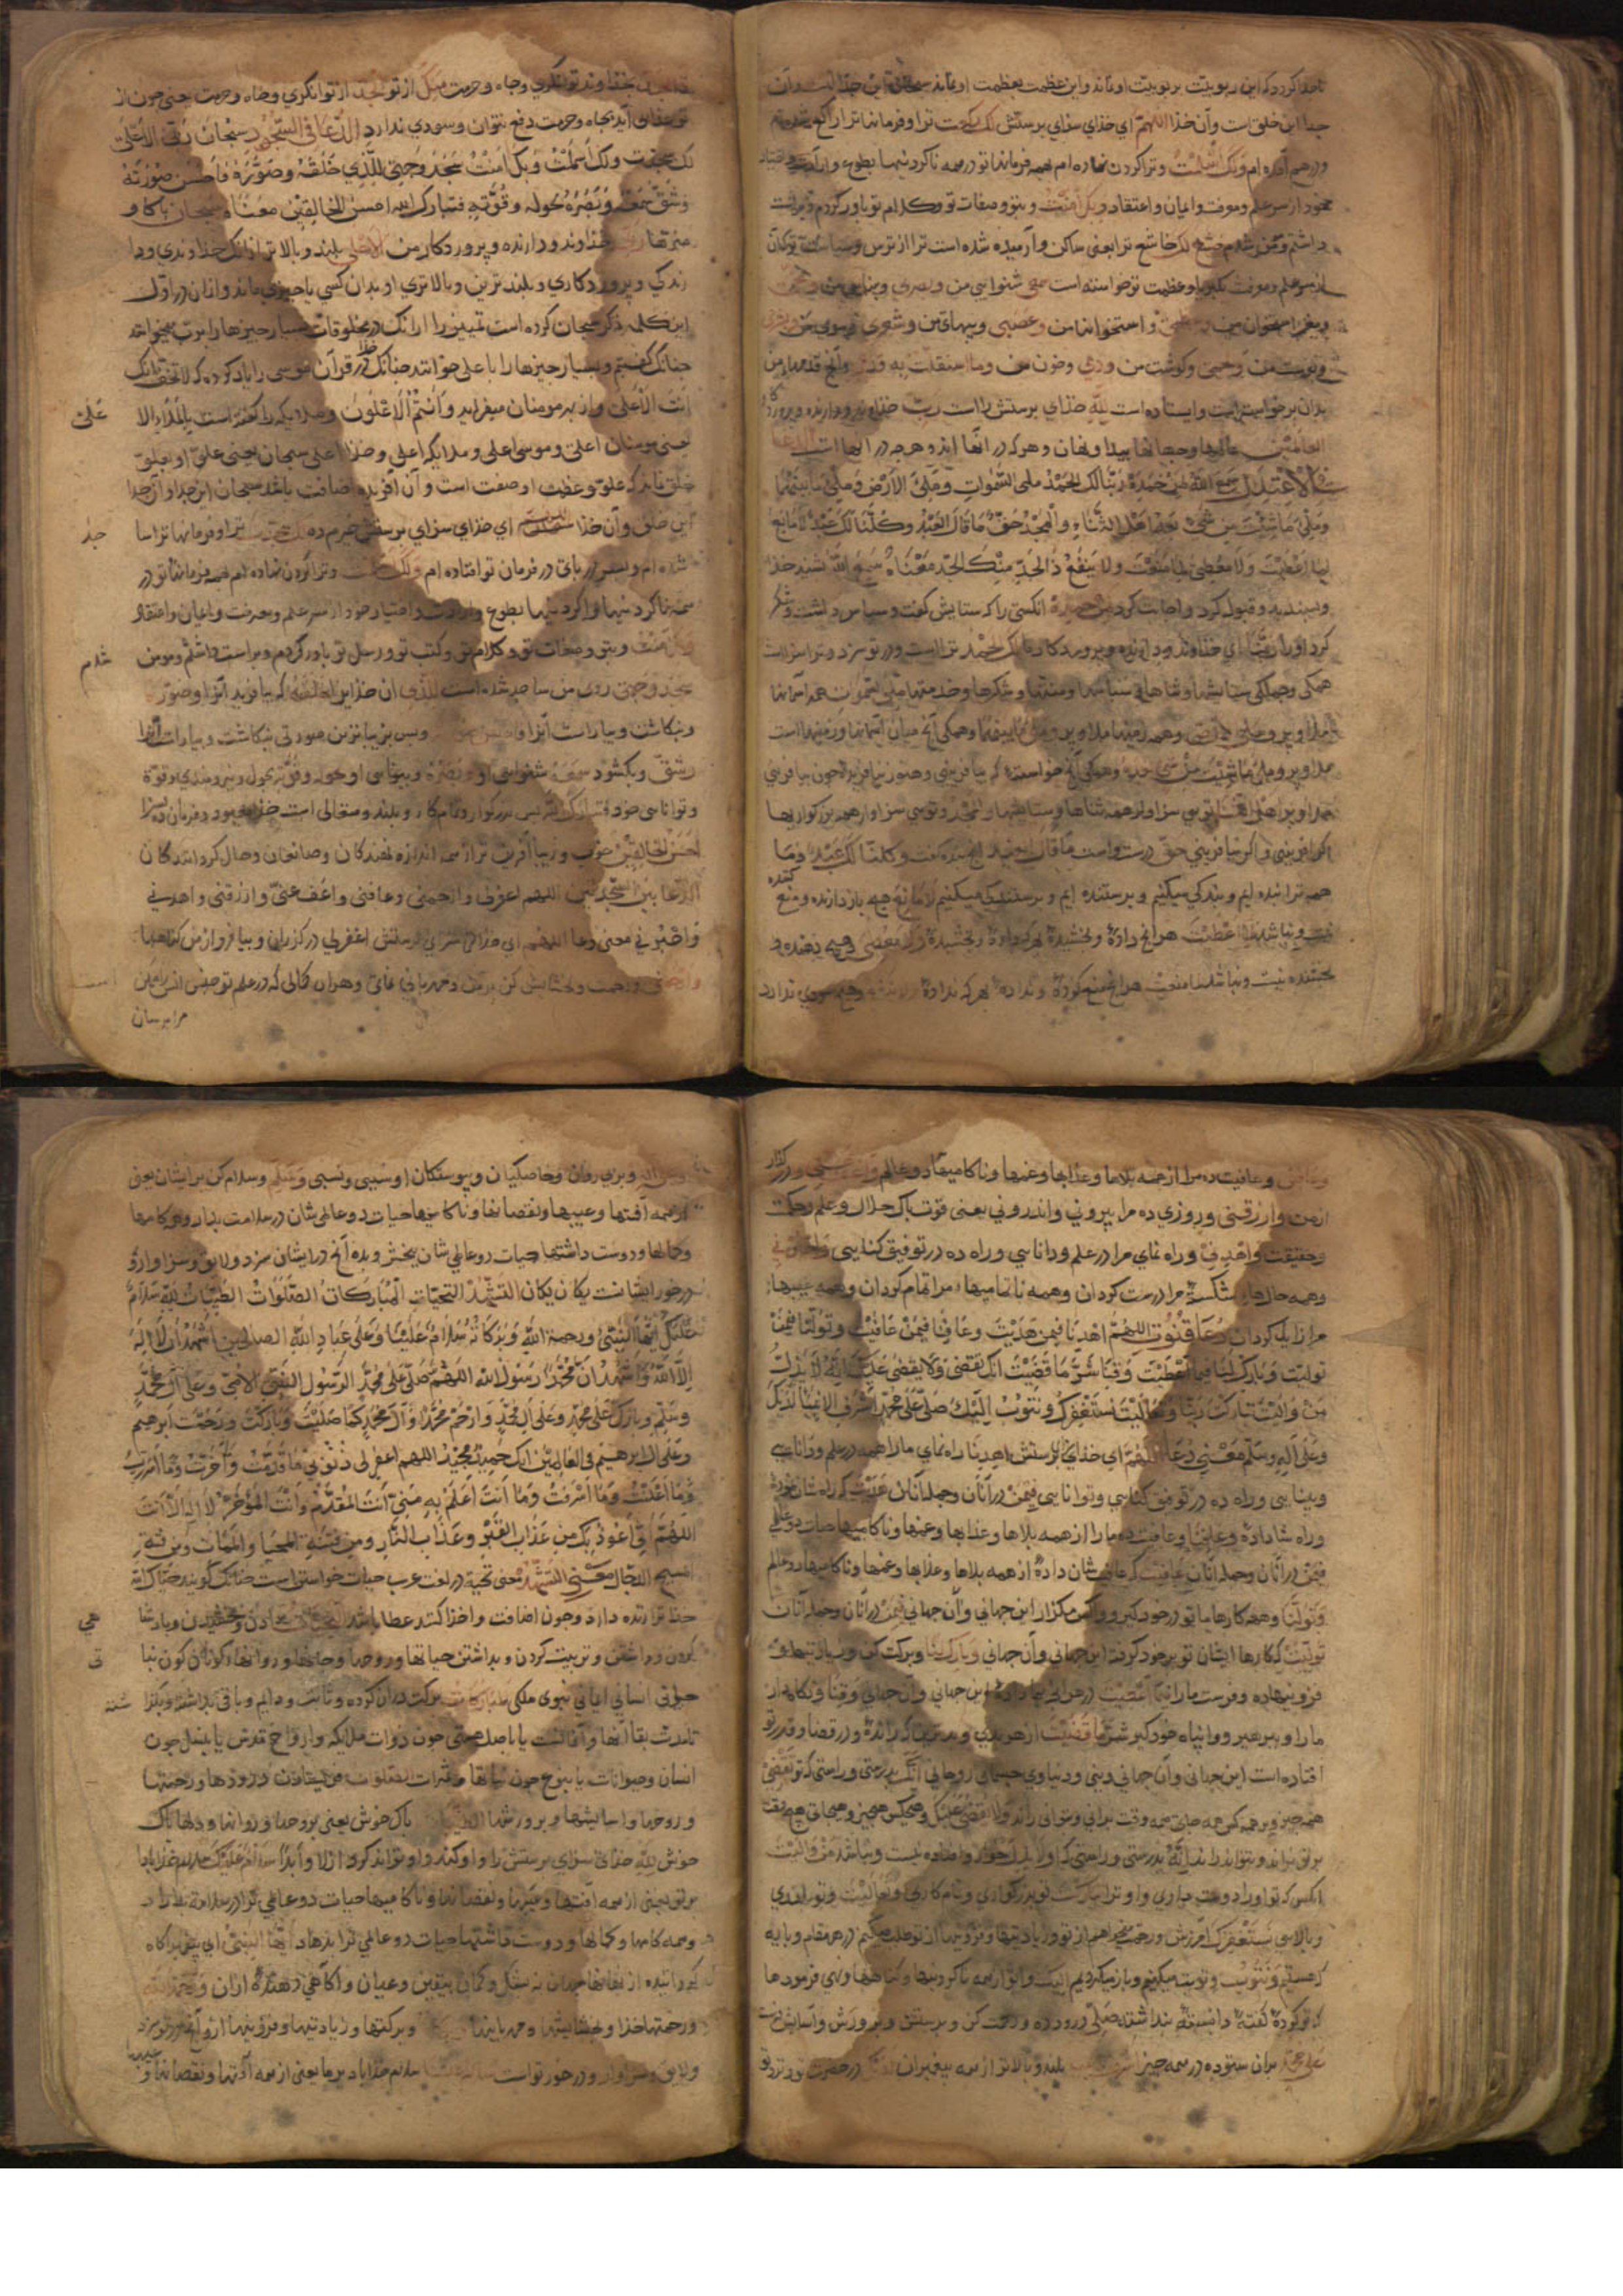 تا جدا کردد که این ربوبیت بر ربوبیت او ماند و این عظمت بعظمت او ماند سبحان این خدا است و آن
جدا این خلق است و آن خدا اللهم ای خدای سزای پرستش لک رکعت ترا و فرمانها ترا راکع شده ام
ام ولک اسلمت و ترا کردن نهاده ام همه فرمانها تو در همه ناکردنیها بطوع و
خود از سر علم و معرفت و ایمان و اعتقاد و بک آمنت و بتو و صفات تو و کلام تو باور کردم و براست
خشع لک خاشع ترا یعنی ساکن و آرمیده شده است ترا از ترس
از سر علم و معرفت و عظمت تو خواسته است سمعی شنوایی من و بصری و بینایی من
و استخوانها من و عصبی و پیهای من و شعری و موی من
و پوست من و لحمی و کوشت من و دمی و خون من و ما استقلت به
بدان برخواسته است و ایستاده است لله خدای پرستش را است رب خداوند و دارنده
العالمین عالمها و جهانها پیدا و نهان و هر که در آنها اند و هر چه در آنها است
الاعتدال سمع الله لمن حمده ربنا لک الحمد ملی السموات و ملی الارض و ملی ما بینهما
و ملی ما شئت من شیء بعد اهل الثناء والمجد حق ما قال العبد و کلنا لک عبد لا مانع
لما اعطیت ولا معطی لما منعت ولا ینفع ذا الجد منک الجد معناه سمع الله بشنید خدا
و پسندید و قبول کرد و اجابت کرد لمن حمده آنکسی را که ستایش گفت و سپاس داشت و شکر
کرد او را ربنا ای خداوند و دارنده و پروردکار ما لک الحمد ترا است و در تو سزد
همکی و جملکی ستایشها و ثناها و سپاسها و منتها و شکرها و خدمتها ملی السموات همه آسمانها
و ملی الارض و همه زمینها ملا و پر و ملی ما بینهما و همکی آنچ میان آسمانها و زمینها است
ملا و پر و ملی ما شئت من شیء بعد و همکی آنچ خواسته که بیافرینی و هنوز نیافریده چون بیافرینی
ملا و پر اهل الثنا توی سزاوار همه ثناها و ستایشها والمجد و توی سزاوار همه بزرکواریها
حق درست و راست ما قال العبد آنچ بنده گفت و کلنا لک عبد و ما
همه ترا بنده ایم و بندکی میکنیم و پرستنده ایم و پرستندکی میکنیم لا مانع هیچ باز دارنده و منع کننده
نیست و نباشد لما اعطیت هر آنچ دادهٔ و بخشیدهٔ هر که دادهٔ و بخشیدهٔ ولا معطی و هیچ دهنده و
بخشنده نیست و نباشد لما منعت هر آنچ منع کردهٔ و ندادهٔ بهر که ندادهٔ ولا ینفع و هیچ سودی ندارد
ذا الجد خداوند توانکری و جاه و حرمت منک از تو الجد از توانکری و جاه و حرمت یعنی چون از
تو عذاب آید بجاه و حرمت دفع نتوان و سودی ندارد الدعا فی السجود سبحان ربی الاعلی
لک سجدت ولک اسلمت وبک آمنت سجد وجهی للذی خلقه وصوره فاحسن صورته
وشق سمعه وبصره بحوله وقوته فتبارک الله احسن الخالقین معناه سبحان پاکا و
منزها ربی خداوند و دارنده و پروردکار من الاعلی بلند و بالاتر از آنک خداوندی و دا
رندکی و پروردکاری و بلندترین و بالاتری او بدان کسی یا چیزی ماند و آنان در اول
این کلمه ذکر سبحان کرده است تمییز را از آنک در مخلوقات بسیار چیزها را رب میخوانند
چنانک گفتیم و بسیار چیزها را با علی خوانند چنانک در قرآن خدا موسی را یاد کرده که لا تخف انک
انت الاعلی و از بهر مومنان میفرماید و انتم الاعلون و ملایکه را گفته است بالملا الاعلی
یعنی مومنان اعلی و موسی اعلی و ملایکه اعلی و خدا اعلی سبحان یعنی علو او بعلو
خلق نماند که علو و عظمت او صفت است و آن آفریده اضافت باشد سبحان این جدا و آن جدا
این خلق و آن خدا اللهم ای خدای سزای پرستش لک سجدت ترا و فرمانها ترا سا جد
شده ام و بسر در فرمان تو افتاده ام ولک اسلمت و ترا کردن نهاده ام همه فرمانها تو در
همه ناکردنیها و کردنیها بطوع و ارادت و اختیار خود از سر علم و معرفت و ایمان و اعتقاد
وبک آمنت و بتو و صفات تو و کلام تو و کتب تو و رسل تو باور کردم و براست داشتم و مومن شدم
سجد وجهی روی من ساجد شده است للذی آن خدای را خلقه که بیافرید آنرا وصوره
و بنکاشت و بیاراست آنرا فاحسن صورته و بس بزیباترین صورتی بنکاشت و بیاراست آنرا
وشق و بکشود سمعه شنوایی او وبصره و بینایی او بحوله وقوته بحول و نیرومندی و قوة
و توانایی خود فتبارک الله بس بزرکوار و نام کار و بلند و متعالی است خدای معبود و فرمان ده سزا
احسن الخالقین خوب و زیبا آفرین تر از همه اندازه نهندکان و صانعان و حال کردانندکان
الدعا بین السجدتین اللهم اغفرلی وارحمنی وعافنی واعف عنی وارزقنی واهدنی
واجبرنی معنی دعا اللهم ای خدای سزای پرستش اغفرلی در کذران و بیامرز از من کناهها
وارحمنی و رحمت و بخشایش کن بر من و مهربانی نمای و هر آن کمالی که در علم تو
مرا برسان
وعافنی و عافیت ده مرا از همه بلاها و عذابها و غمها و ناکامیها دو عالم واعف عنی و در گذار
از من وارزقنی و روزی ده مرا بیرونی و اندرونی یعنی قوت پاک حلال و علم و حکمت
و حقیقت واهدنی و راه نمای مرا در علم و دانایی و راه ده در توفیق کنایی واجبرنی
و همه حالها شکستهٔ مرا درست کردان و همه ناتمامیها مرا تمام کردان و همه عیبها
مرا زایل کردان دعا قنوت اللهم اهدنا فیمن هدیت وعافنا فیمن عافیت وتولنا فیمن
تولیت وبارک لنا فیما اعطیت وقنا شر ما قضیت انک تقضی ولا یقضی علیک انه لا یذل
من والیت تبارکت ربنا وتعالیت نستغفرک ونتوب الیک صل علی محمد اشرف الانبیا لدیک
وعلی آله وسلم معنی دعا اللهم ای خدای پرستش اهدنا راه نمای ما را همه در علم و دانایی
و بینایی و راه ده در توفیق کنایی و توانایی فیمن در آنان و جمله آنان هدیت که راه شان نمودهٔ
و راه شان دادهٔ وعافنا و عافیت ده ما را از همه بلاها و عذابها و غمها و ناکامیها حیات دو عالمی
فیمن در آنان و جمله آنان عافیت که عافیت شان دادهٔ از همه بلاها و عذابها و غمها و ناکامیها دو عالم
وتولنا و همه کارها ما تو در خود کیر و واکس مگذار این جهانی و آن جهانی فیمن در آنان و جمله آنان
تولیت که کارها ایشان تو بر خود کرفتهٔ این جهانی و آن جهانی وبارک لنا و برکت کن و زیادتیها و
فزونیها ده و فرست ما را فیما اعطیت در هر آنچ بما دادهٔ این جهانی و آن جهانی وقنا و نکاه دار
ما را و بپرهیز و وا پناه خود کیر شر ما قضیت از هر بدی و بدترین که راندهٔ و در قضا و قدر تو
افتاده است این جهانی و آن جهانی دینی و دنیاوی جسمانی روحانی انک بدرستی و راستی که تو تقضی
همه چیز و بر همه کس همه جای همه وقت برانی و بتوانی راند ولا یقضی علیک و هیچکس هیچ چیز و هیچ جای هیچ وقت
بر تو نراند و نتواند راند انه بدرستی و راستی که او لا یذل خوار و افتاده نیست و نباشد من والیت
آنکس که تو او را دوست داری و او ترا تبارکت تو بزرکواری و نام کاری وتعالیت و تو بلندی
و بالایی نستغفرک آمرزش و رحمت میخواهیم از تو و زیادتیها و فزونیها از تو طلب میکنیم در هر مقام و پایه
که هستیم ونتوب و توبت میکنیم و باز میکردیم الیک وا تو از همه ناکردنیها و کناهها و نهی فرمودها
که تو کردهٔ گفتهٔ دانستهٔ پنداشته صل درود ده و رحمت کن و پرستش و پرورش و آسایش فرست
علی محمد بران ستوده در همه چیز اشرف الانبیا بلند و بالاتر از همه پیغمبران لدیک در حضرت تو و نزد تو
وعلی آله و بر پی روان و خاصکیان و پیوستکان او سببی و نسبی وسلم و سلام کن بر ایشان یعنی
از همه آفتها و عیبها و نقصانها و ناکامیها حیات دو عالمی شان در سلامت بدار و همه کامها
و کمالها و دوست داشتها حیات دو عالمی شان ببخش و بده آنچ در ایشان سزد و لایق و سزاوار و
در خور ایشانست یکان یکان التشهد التحیات المبارکات الصلوات الطیبات لله سلام
علیک ایها النبی ورحمة الله وبرکاته سلام علینا وعلی عباد الله الصالحین اشهد ان لا اله
الا الله واشهد ان محمدا رسول الله اللهم صل علی محمد الرسول النبی الامی وعلی آل محمد
وسلم وبارک علی محمد وعلی آل محمد وارحم محمدا وآل محمد کما صلیت وبارکت ورحمت ابرهیم
وعلی آل ابرهیم فی العالمین انک حمید مجید اللهم اغفرلی ذنوبی ما قدمت وما اخرت وما اسررت
وما اعلنت وما اسرفت وما انت اعلم به منی انت المقدم وانت المؤخر لا اله الا انت
اللهم انی اعوذ بک من عذاب القبر وعذاب النار ومن فتنة المحیا والممات ومن فتنة
المسیح الدجال معنی التشهد معنی تحیة در لغت عرب حیات خواستن است چنانک گویند حیاک الله
خدا ترا زنده دارد و چون اضافت واخذا کنند عطا باشد
کردن و داشتن و تربیت کردن و بداشتن حیاتها و روحها و جانها و روانها
حیوانی انسانی ایمانی نبوی ملکی المبارکات برکت در آن کرده و ثابت و دایم و باقی بداشته
ملایکه و ارواح قدس یا بنسل چون
انسان و حیوانات یا بنوع چون نباتها و ثمرات الصلوات
و روحها و آسایشها و پرورشها الطیبات پاک خوش یعنی پروحها و روانها و دلها پاک
خوش لله خدای سزای پرستش را و او کند و او تواند کرد ازلا وابدا سلام علیک سلام خدا بادا
بر تو یعنی از همه آفتها و عیبها و نقصانها و ناکامیها حیات دو عالمی ترا در سلامت بدارد
و همه کامها و کمالها و دوست داشتها حیات دو عالمی ترا بدهاد ایها النبی ای پیغمبر آکاه
کردانیده از نهانها جهان نه بشک و کمان بیقین و عیان و آکاهی دهندهٔ از آن ورحمة الله
و رحمتها خدا و بخشایشها و مهربانیها وبرکاته و برکتها و زیادتیها و فزونیها از و آنچ در تو سزد
ولایق و سزاوار و در خور تو است سلام علینا سلام خدا باد بر ما یعنی از همه آفتها و نقصانها و عیبها